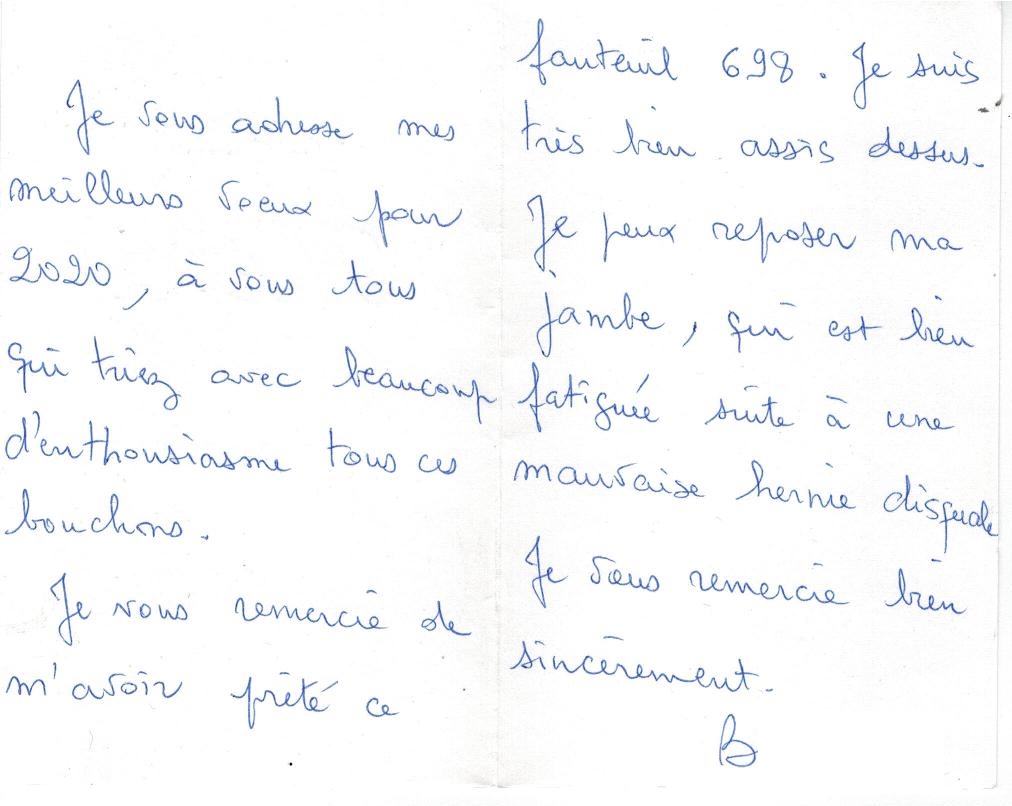 Je vous adresse mes
meilleurs voeux pour
2020, à vous tous
qui triez avec beaucoup
d'enthousiasme tous ces
bouchons.
Je vous remercie de
m'avoir prêté ce
fauteuil 698. Je suis
très bien assis dessus.
Je peux reposer ma
jambe, qui est bien
fatiguée suite à une
mauvaise hernie disquale
Je vous remercie bien
sincèrement.
B